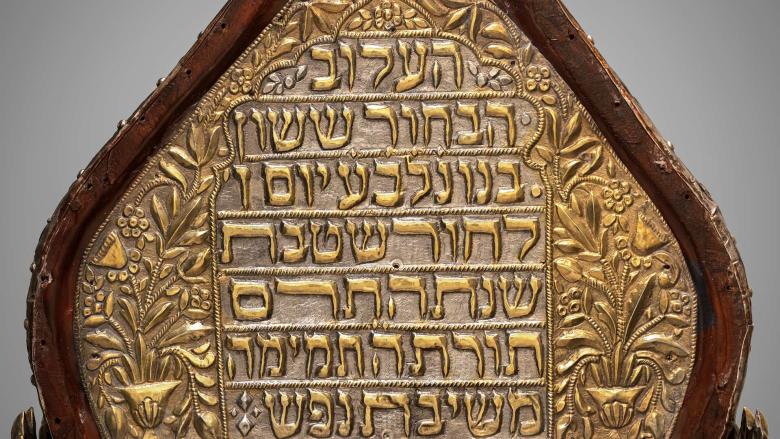 העלוב
הבחור ששון
בנו נלבע יום ו
לחודש טבת
שנת התרס
תורת ה תמימה
משיבת נפש